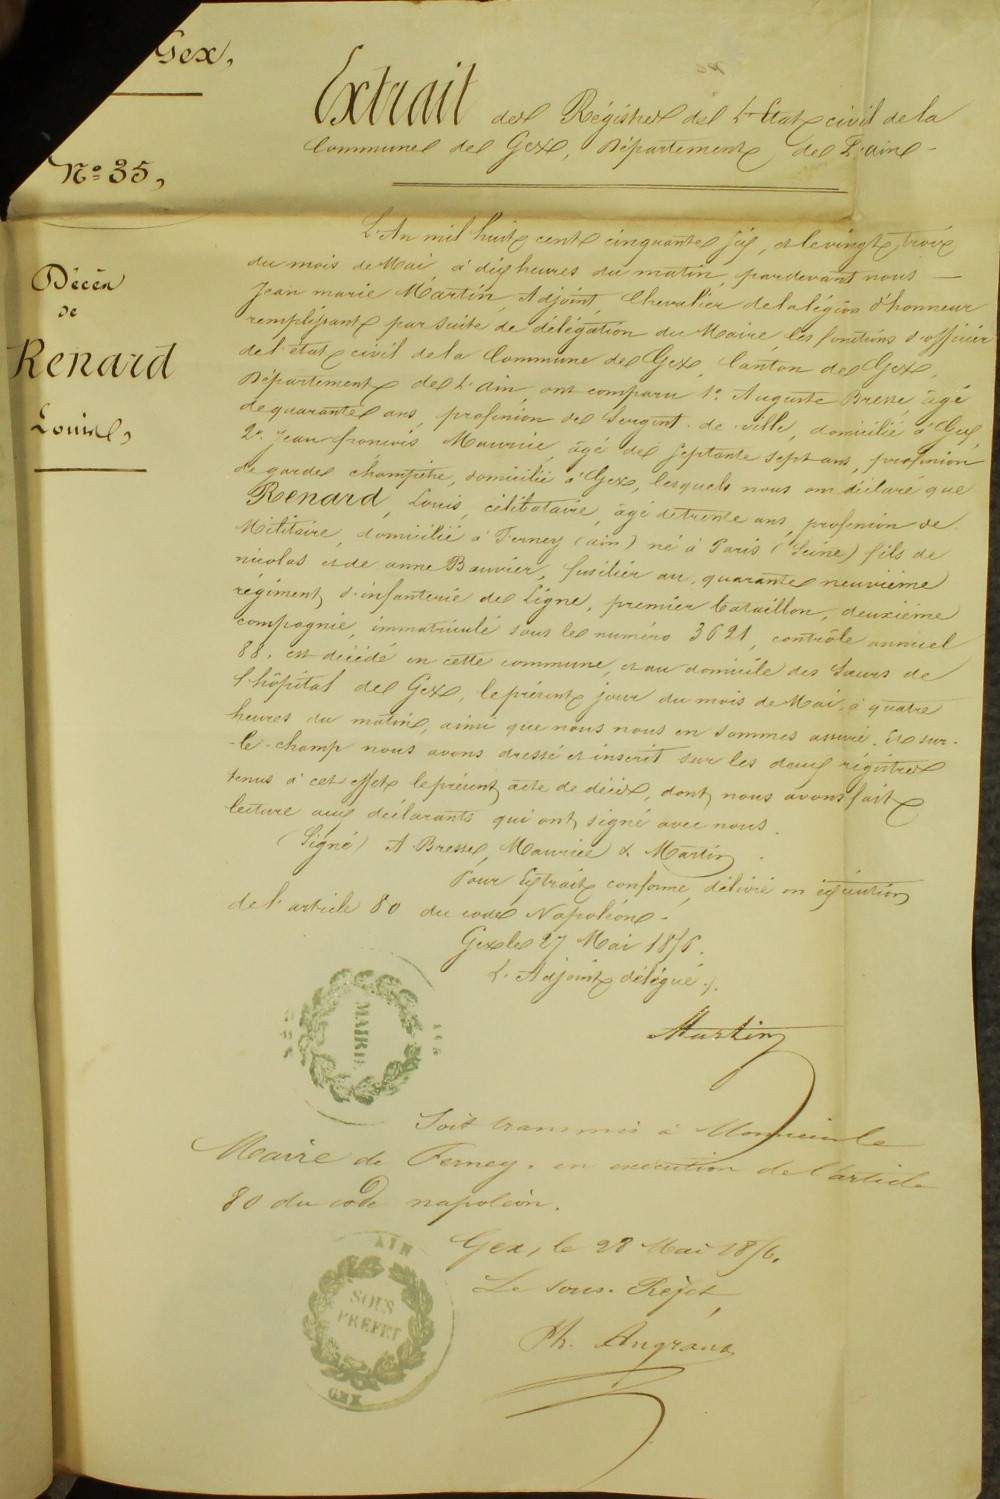 Gex,
Extrait des Régistres de l'Etat civil de la
Commune de Gex, Département de l'ain -
N° 35,
L'An mil huit cent cinquante six, et le vingt trois
du mois de Mai, à dix heures du matin, pardevant nous —
Jean marie Martin, Adjoint, Chevalier de la légion d'honneur
remplissant par suite de délégation du Maire, les fonctions d'officier
de l'état civil de la Commune de Gex, Canton de Gex,
Département de l'ain, ont comparu 1° Auguste Bresse, âgé
de quarante ans, profession de Sergent de ville, domicilié à Gex,
2° Jean françois Maurice, âgé de septante sept ans, profession
de garde champêtre, domicilié à Gex, lesquels nous ont déclaré que
Renard, Louis, célibataire, âgé de trente ans, profession de
Militaire, domicilié à Ferney (ain) né à Paris (Seine) fils de
nicolas et de anne Bauvier, fusilier au quarante neuvième
régiment d'infanterie de Ligne, premier bataillon, deuxième
compagnie, immatriculé sous le numéro 3621, contrôle annuel
88, est décédé en cette commune, et au domicile des Sœurs de
l'hôpital de Gex, le présent jour du mois de Mai, à quatre
heures du matin, ainsi que nous nous en sommes assuré. Et sur-
-le-champ nous avons dressé et inscrit sur les deux régistres
tenus à cet effet le présent acte de décès, dont nous avons fait
lecture aux déclarants qui ont signé avec nous.
(Signé) A. Bresse, Maurice & Martin.
Pour Extrait conforme, délivré en exécution
de l'article 80 du code Napoléon.
Gex le 27 Mai 1856.
L'Adjoint délégué.
Martin
Décès
de
Renard
Louis,
MAIRIE
Soit transmis à Monsieur le
Maire de Ferney, en exécution de l'article
80 du code napoléon.
Gex, le 28 Mai 1856.
Le sous-Préfet,
Ph. Angrand
AIN
SOUS
PREFET
GEX